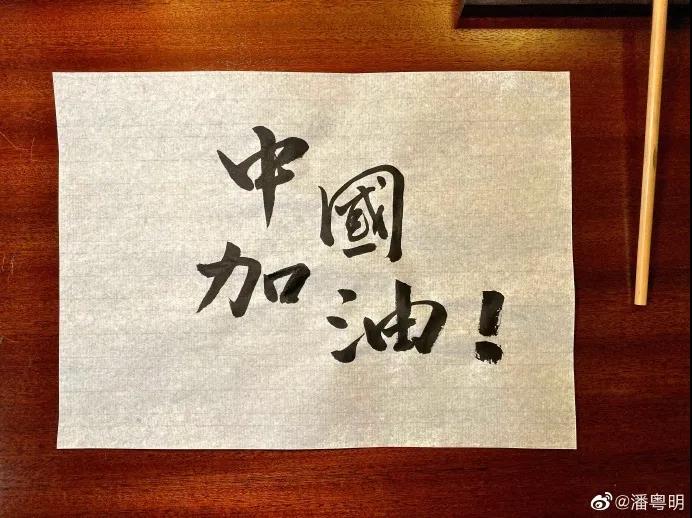 中國
加油!
@潘粤明